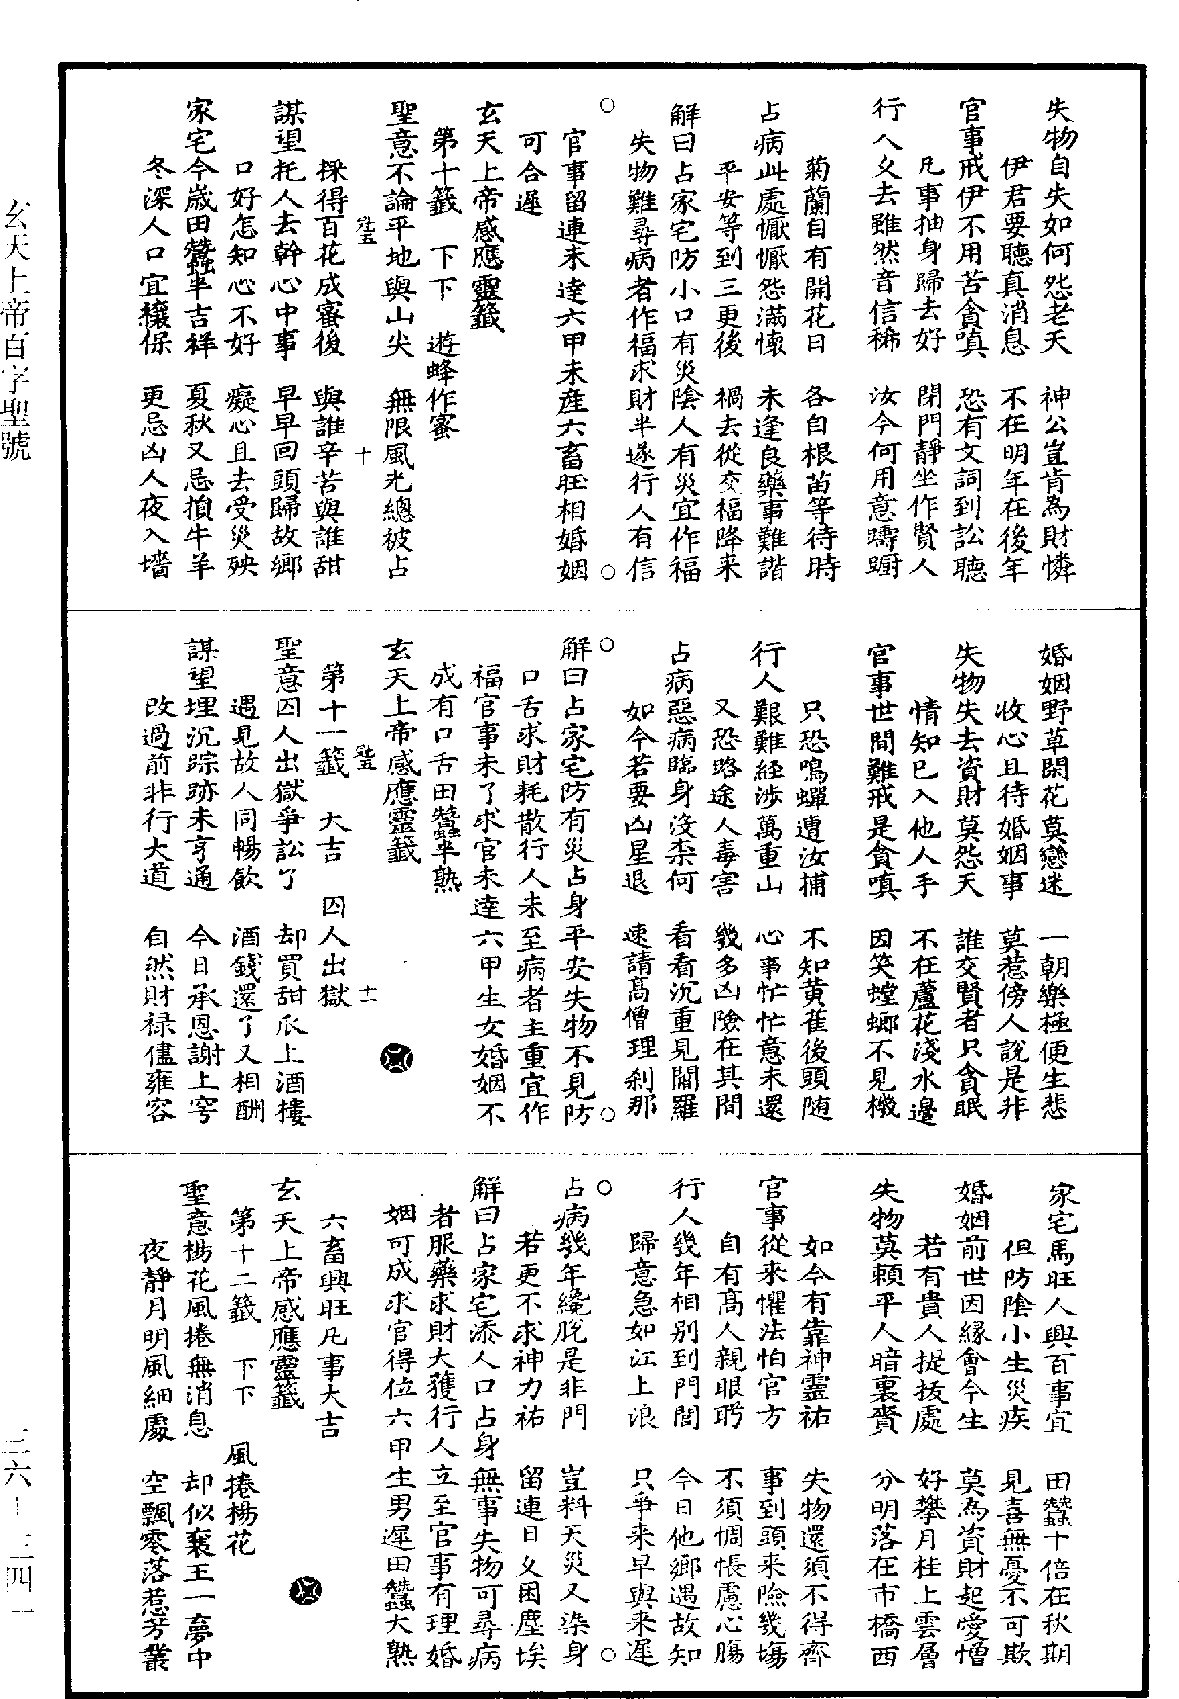 失物自失如何怨老天　神公豈肯為財憐
伊君要聽真消息　不在明年在後年
官事戒伊不用苦貪嗔　恐有文詞到訟聽
凡事抽身歸去好　閉門靜坐作賢人
行人久去雖然音信稀　汝今何用意躊躇
菊蘭自有開花日　各自根苗等待時
占病此處懨懨怨滿懷　未逢良藥事難諧
平安等到三更後　禍去從交福降來
解曰占家宅防小口有災陰人有災宜作福
失物難尋病者作福求財半遂行人有信
○　○
官事留連未達六甲未產六畜旺相婚姻
可合遲
玄天上帝感應靈籤
第十籤　下下　遊蜂作蜜　十
聖意不論平地與山尖　無限風光總被占
採得百花成蜜後　與誰辛苦與誰甜
謀望托人去幹心中事　早早回頭歸故鄉
口好怎知心不好　癡心且去受災殃
家宅今歲田蠶半吉祥　夏秋又忌損牛羊
冬深人口宜禳保　更忌凶人夜入墻
婚姻野草閑花莫戀迷　一朝樂極便生悲
收心且待婚姻事　莫惹傍人說是非
失物失去資財莫怨天　誰交賢者只貪眠
情知已入他人手　不在蘆花淺水邊
官事世間難戒是貪嗔　因笑螳螂不見機
只恐鳴蟬遭汝捕　不知黃雀後頭随
行人艱難經涉萬重山　心事忙忙意未還
又恐路途人毒害　幾多凶險在其間
占病惡病臨身沒柰何　看看沉重見閻羅
如今若要凶星退　速請高僧理剎那
○　○
解曰占家宅防有災占身平安失物不見防
口舌求財耗散行人未至病者主重宜作
福官事未了求官未達六甲生女婚姻不
成有口舌田蠶半熟
玄天上帝感應靈籤
第十一籤　大吉　囚人出獄　十一
聖意囚人出獄爭訟了　却買甜瓜上酒樓
遇見故人同暢飲　酒錢還了又相酬
謀望埋沉踪跡未亨通　今日承恩謝上穹
改過前非行大道　自然財禄儘雍容
家宅馬旺人興百事宜　田蠶十倍在秋期
但防陰小生災疾　見喜無憂不可欺
婚姻前世因緣會今生　莫為資財起愛憎
若有貴人提拔處　好攀月桂上雲層
失物莫賴平人暗裏賫　分明落在市橋西
如今有靠神靈祐　失物還須不得齊
官事從來懼法怕官方　事到頭來險幾塲
自有高人親眼盻　不須惆悵慮心腸
行人幾年相別到門閭　今日他鄉遇故知
歸意急如江上浪　只爭来早與来遲
○　○
占病幾年纔脫是非門　豈料天災又染身
若更不求神力祐　留連日久困塵埃
解曰占家宅添人口占身無事失物可尋病
者服藥求財大獲行人立至官事有理婚
姻可成求官得位六甲生男遲田蠶大熟
六畜興旺凡事大吉
玄天上帝感應靈籤
第十二籤　下下　風捲楊花
聖意楊花風捲無消息　却似襄王一夢中
夜靜月明風細處　空飄零落惹芳叢
玄天上帝百字聖號
三六－三四一